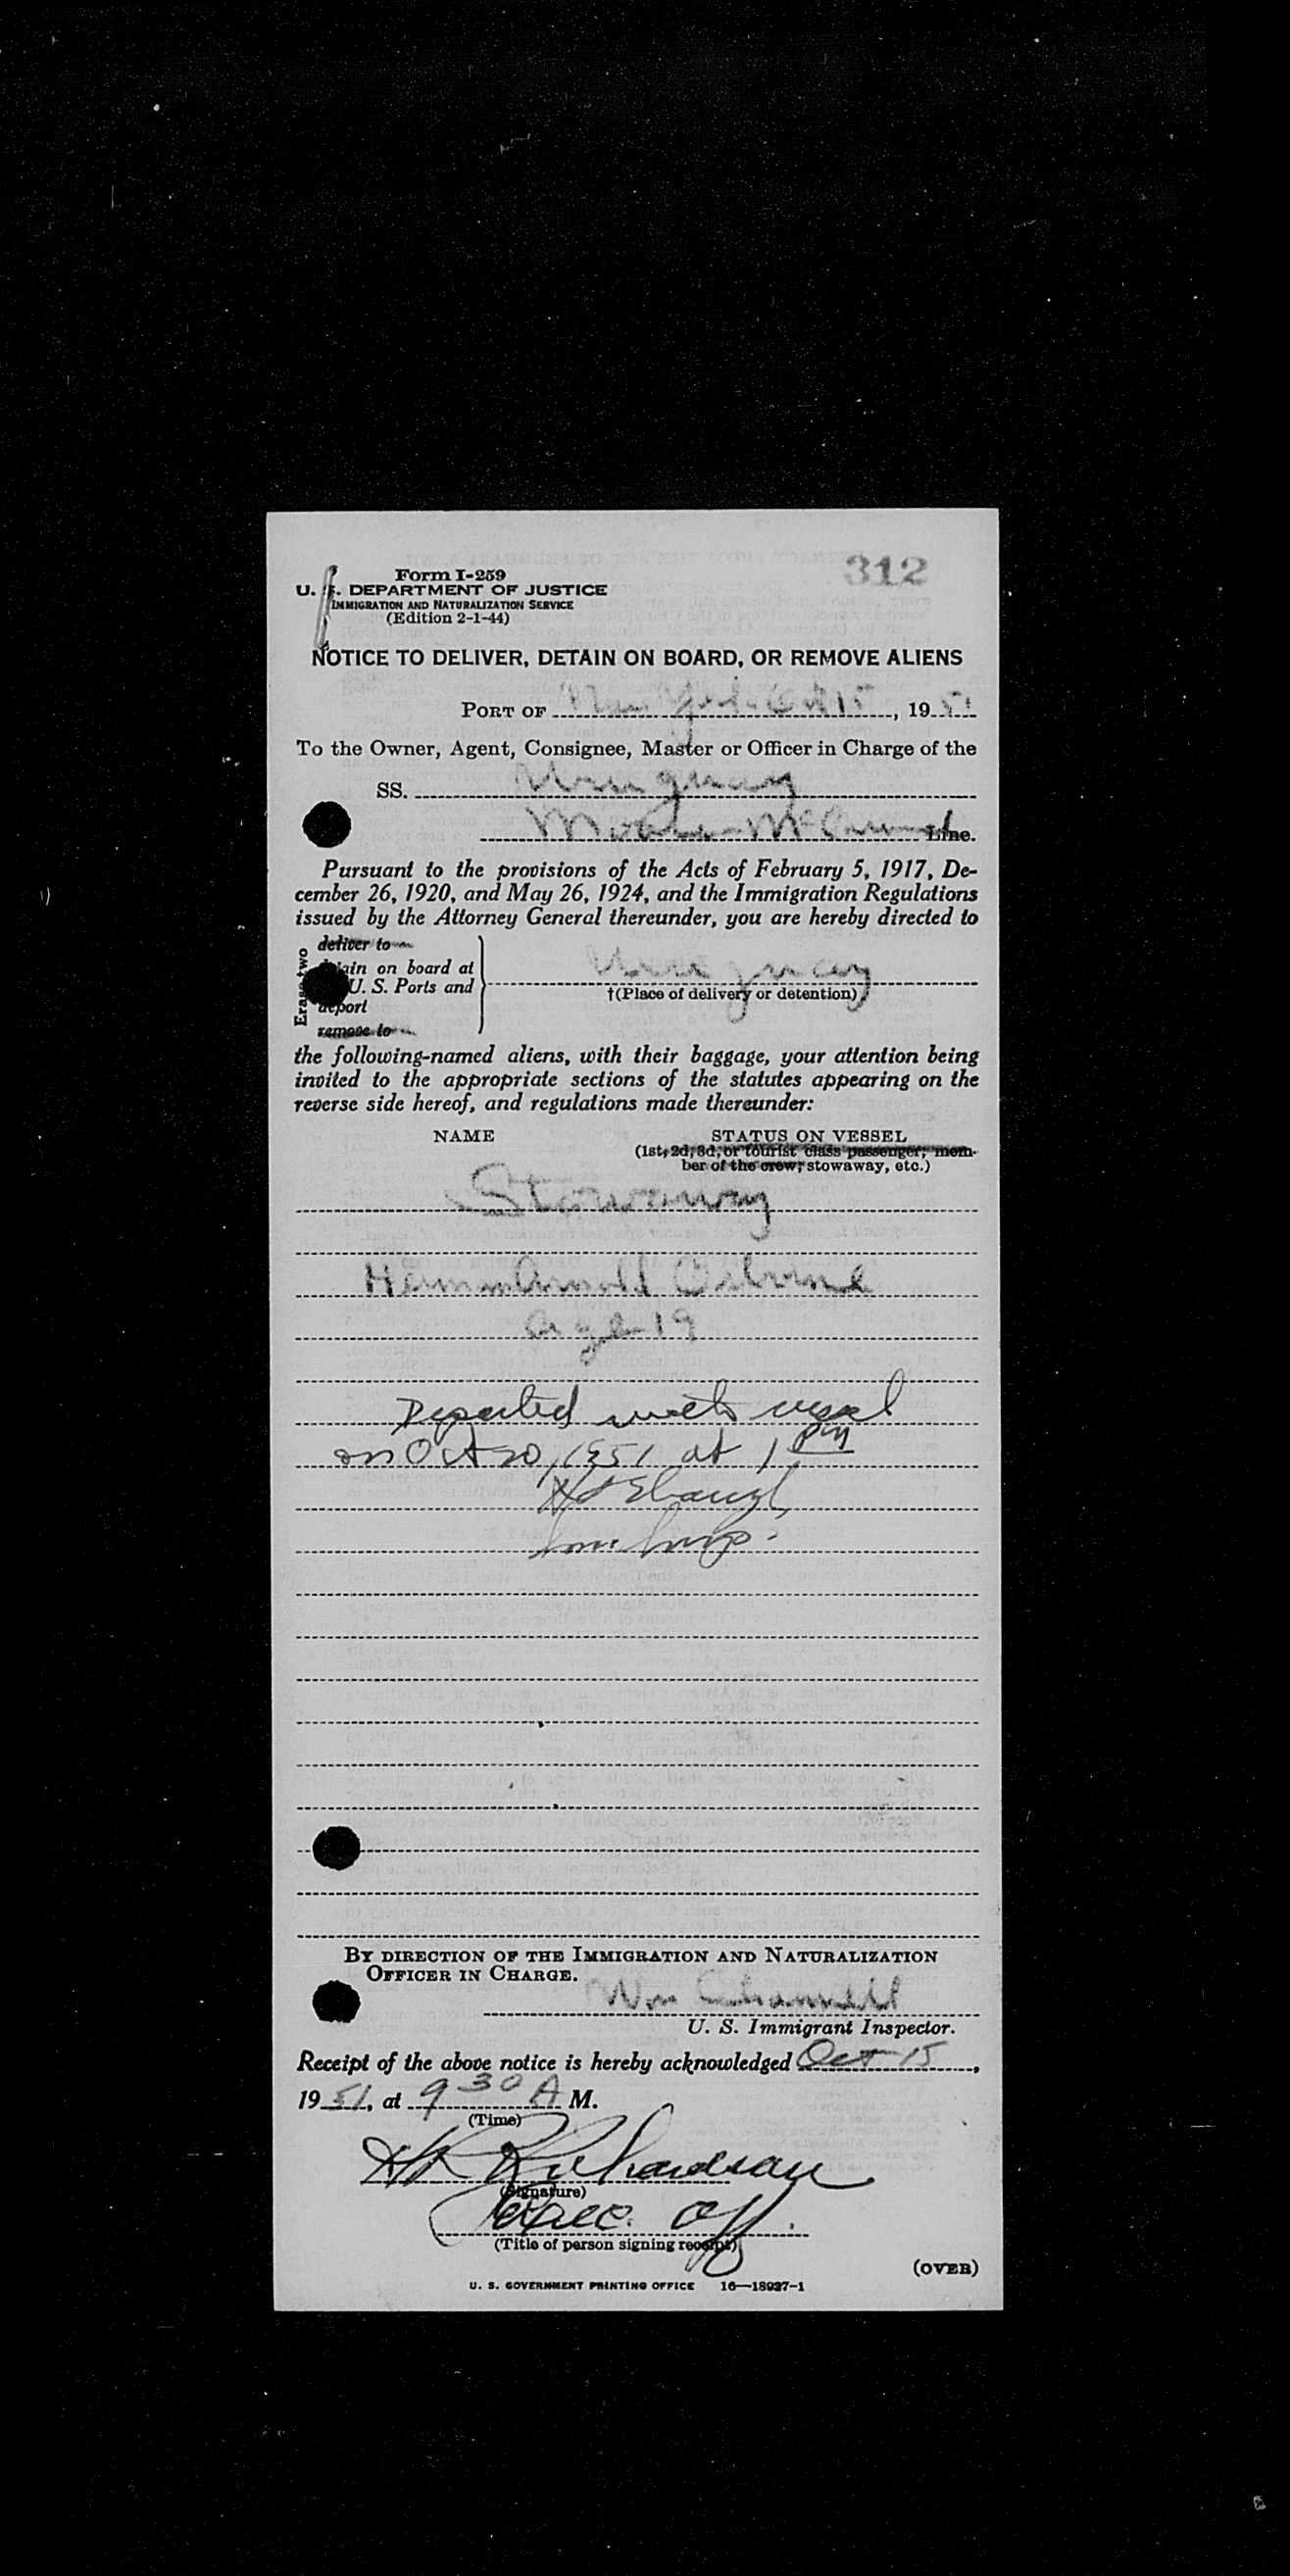 312
Form I-259
U. S. DEPARTMENT OF JUSTICE
IMMIGRATION AND NATURALIZATION SERVICE
(Edition 2-1-44)
NOTICE TO DELIVER, DETAIN ON BOARD, OR REMOVE ALIENS
PORT OF New York Oct 15, 1951
To the Owner, Agent, Consignee, Master or Officer in Charge of the
SS. Uruguay
Moore-McCormack Line.
Pursuant to the provisions of the Acts of February 5, 1917, De-
cember 26, 1920, and May 26, 1924, and the Immigration Regulations
issued by the Attorney General thereunder, you are hereby directed to
Erase two
deliver to
detain on board at
U. S. Ports and
deport
remove to
Uruguay
†(Place of delivery or detention)
the following-named aliens, with their baggage, your attention being
invited to the appropriate sections of the statutes appearing on the
reverse side hereof, and regulations made thereunder:
NAME STATUS ON VESSEL
(1st, 2d, 3d, or tourist class passenger, mem-
ber of the crew, stowaway, etc.)
Stowaway
Age 19
Departed with vessel
on Oct 20, 1951 at 1 PM
Imm Insp.
BY DIRECTION OF THE IMMIGRATION AND NATURALIZATION
OFFICER IN CHARGE.
Wm
U. S. Immigrant Inspector.
Receipt of the above notice is hereby acknowledged Oct 15,
1951, at 9 30 A M.
(Time)
HR Richardson
(Signature)
Exec. Off.
(Title of person signing receipt)
(OVER)
U. S. GOVERNMENT PRINTING OFFICE 16—18927-1